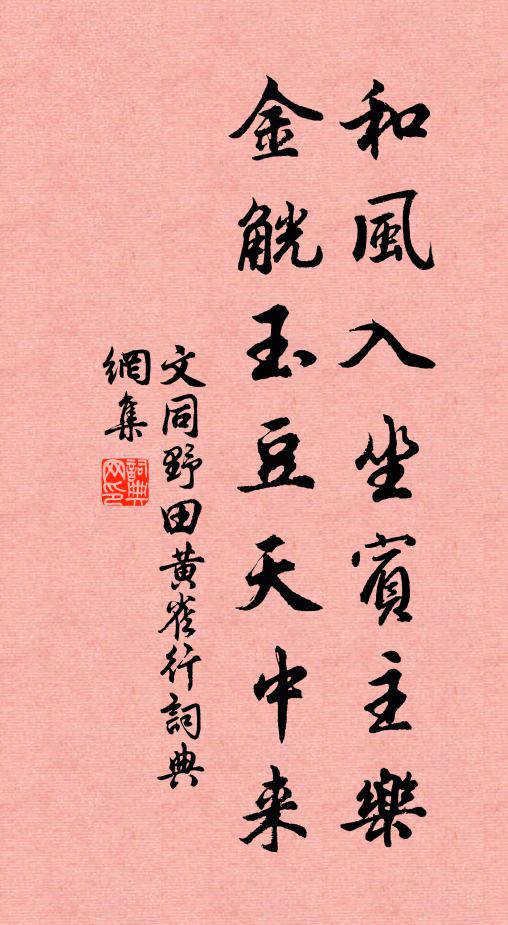 和風入坐賓主樂
金觥玉豆天中来
文同野田黄雀行詞典
網集
詞典网印